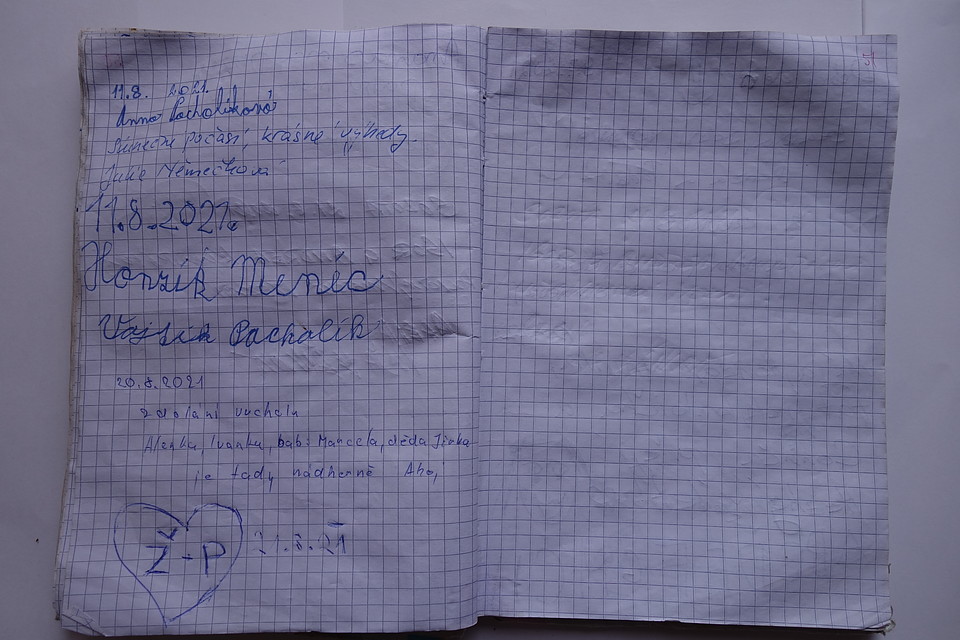 11.8. 2021.
Anna Pacholíková
Slunečné počasí, krásné výhledy.
Julie Němečková
11.8.2021.
Honzík Meníc
Vojtík Pacholík
20.8.2021
zdolání vrcholu
Alenka, Ivanka, babi Marcela, děda Jirka
je tady nádherně Ahoj
Ž-P 21.8.21
51